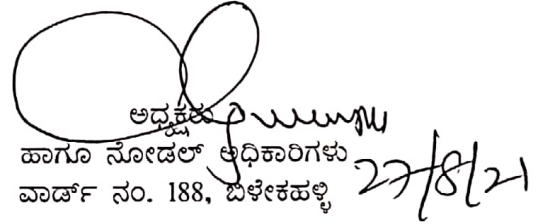 ಅಧ್ಯಕ್ಷರು
ಹಾಗೂ ನೋಡಲ್ ಅಧಿಕಾರಿಗಳು
ವಾರ್ಡ್ ನಂ. 188, ಬಿಳೇಕಹಳ್ಳಿ 27/8/21